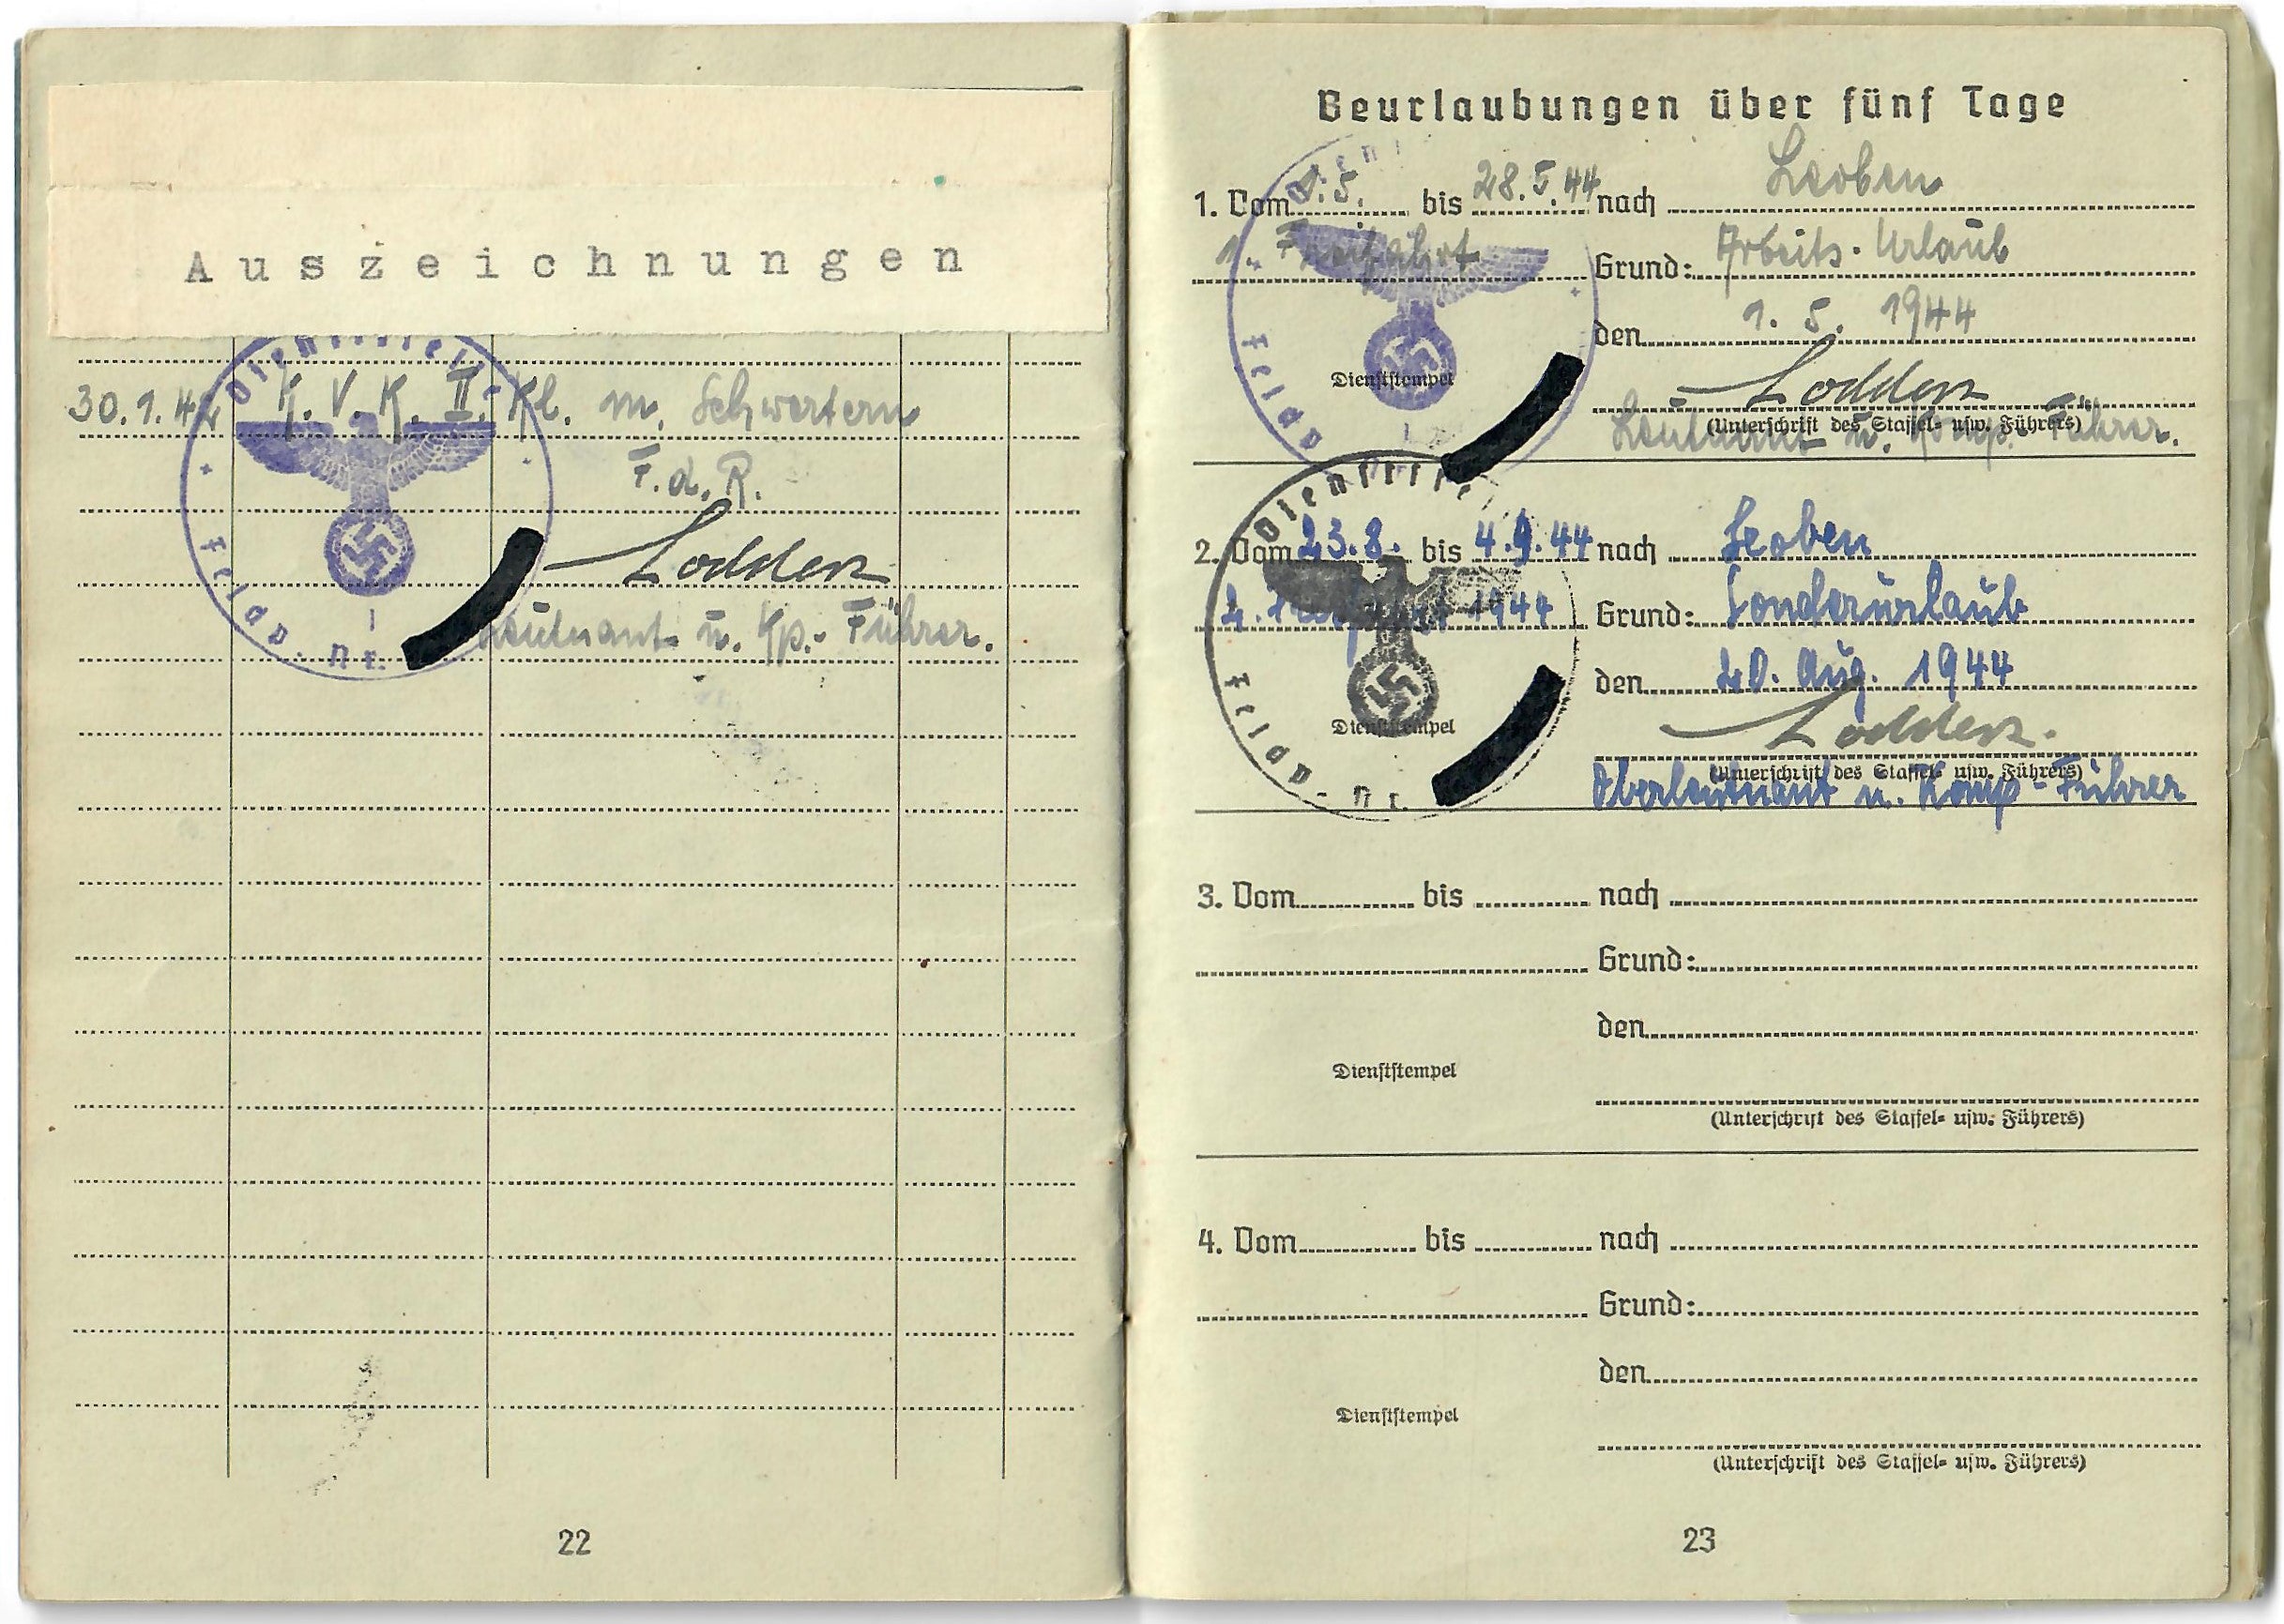 Auszeichnungen
Dienststelle
30.1.42 K. V. K. II. Kl. m. Schwertern
F. d. R.
Lodders
Feldp. Nr.
Leutnant u. Kp.-Führer.
22
Beurlaubungen über fünf Tage
1. Vom 1.5. bis 28.5.44 nach Leoben
1. Freifahrt Grund: Arbeits-Urlaub
den 1. 5. 1944
Dienststempel
Feldp
Lodders
(Unterschrift des Staffel- usw. Führers)
Leutnant u. Komp.-Führer.
Dienststelle
2. Vom 23.8. bis 4.9.44 nach Leoben
2. Freifahrt 1944 Grund: Sonderurlaub
den 20. Aug. 1944
Dienststempel
Feldp. Nr.
Lodders.
(Unterschrift des Staffel- usw. Führers)
Oberleutnant u. Komp-Führer
3. Vom bis nach
Grund:
den
Dienststempel
(Unterschrift des Staffel- usw. Führers)
4. Vom bis nach
Grund:
den
Dienststempel
(Unterschrift des Staffel- usw. Führers)
23